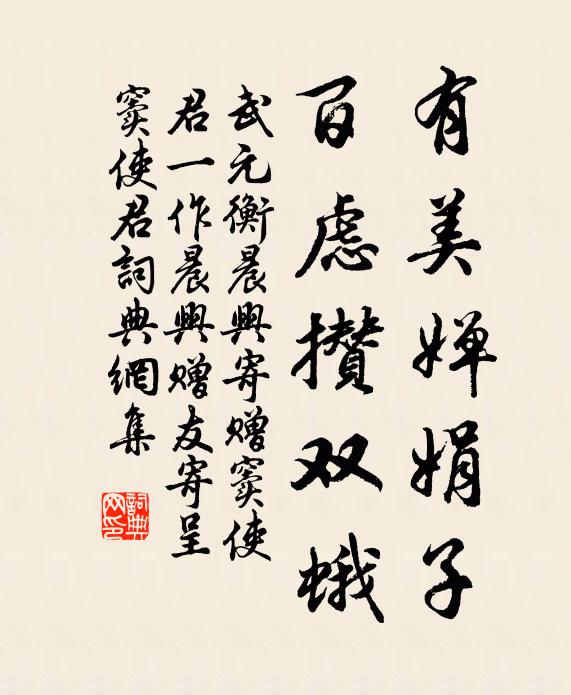 有美婵娟子
百虑攒双蛾
武元衡晨興寄赠窦使
君一作晨興赠友寄呈
窦使君詞典網集
詞典
网印